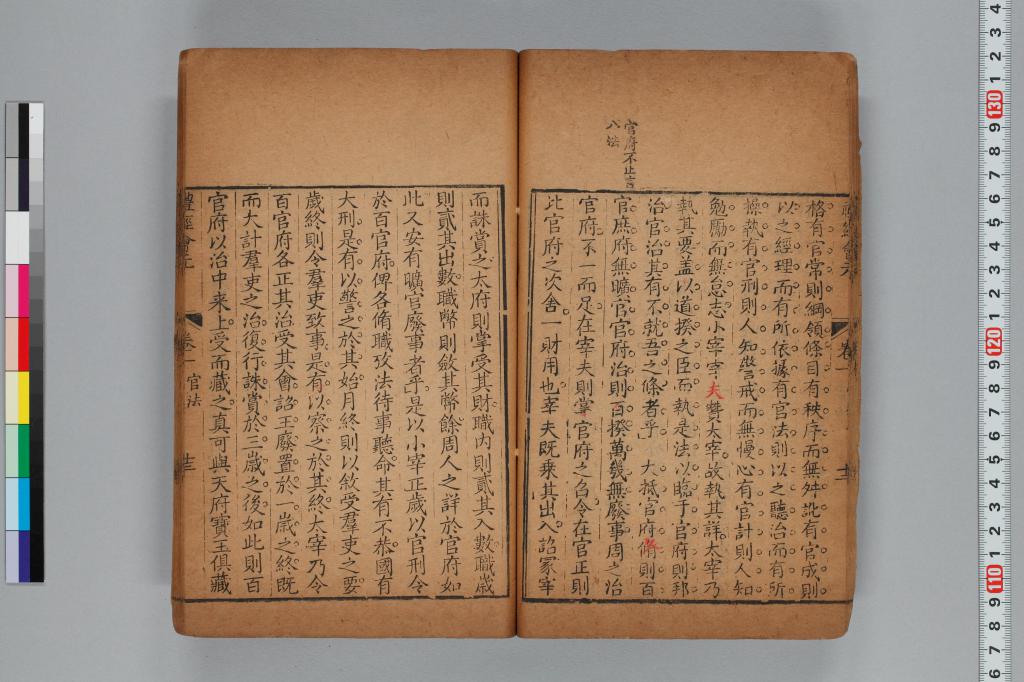 官府不止言
八法
格有官常則綱領條目有秩序而無舛訛有官成則
以之經理而有所依據有官法則以之聽治而有所
操執有官刑則人知警戒而無慢心有官計則人知
勉勵而無怠志小宰宰夫贊太宰故執其詳太宰乃
執其要蓋以道揆之臣而執是法以臨于官府則邦
治官治其有不就吾之條者乎 大抵官府脩則百
官庶府無曠官官府治則百揆萬幾無廢事周之治
官府不一而足在宰夫則掌官府之召令在官正則
比官府之次舍一財用也宰夫既乗其出入詔冢宰
禮經會元
卷一
官法
十三
而誅賞之太府則掌受其財職內則貳其入數職歳
則貳其出數職幣則斂其幣餘周人之詳於官府如
此又安有曠官廢事者乎是以小宰正歲以官刑令
於百官府俾各脩職攷法待事聽命其有不恭國有
大刑是有以警之於其始月終則以敘受羣吏之要
歲終則令羣吏致事是有以察之於其終太宰乃令
百官府各正其治受其會詔王廢置於一歲之終既
而大計羣吏之治復行誅賞於三歲之後如此則百
官府以治中来上受而藏之真可與天府寶玉俱藏